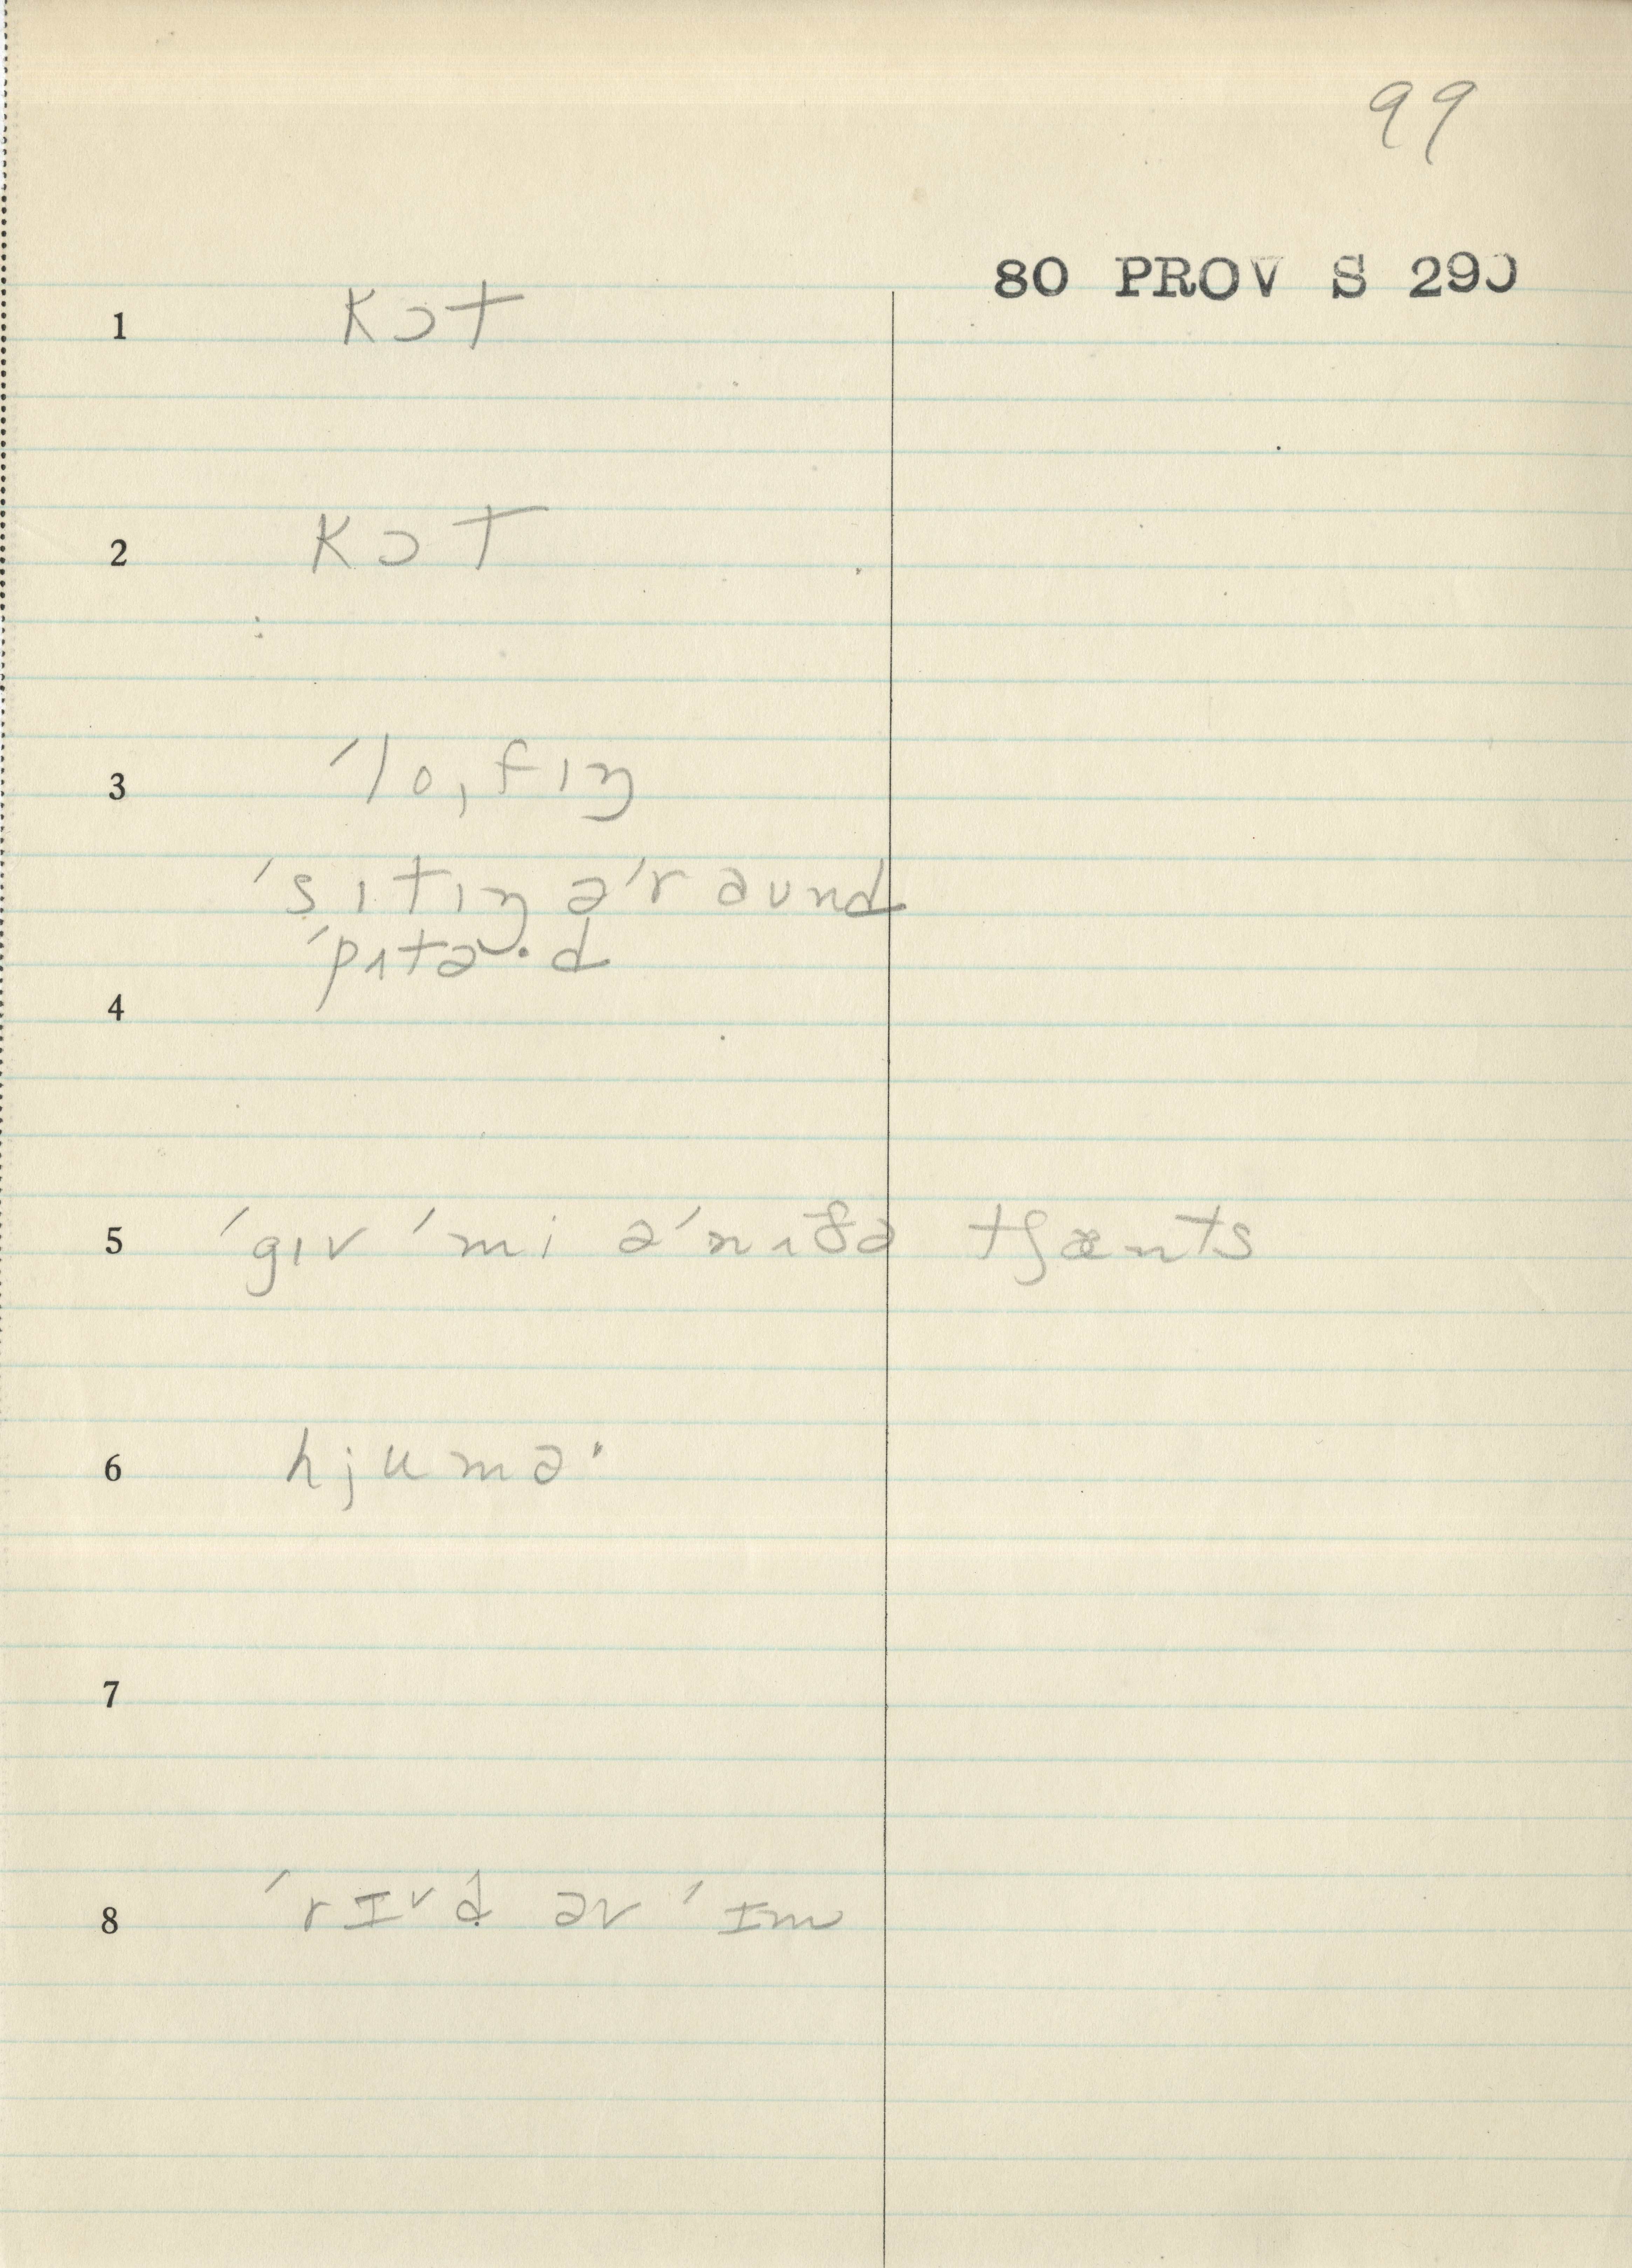 99
80 PROV S 290
1 kɔt
2 kɔt
3 ˈloˌfɪŋ
ˈsɪtɪŋ əˈraund
ˈpɪtə·d
4
5 ˈgɪv ˈmi əˈnʌðə tʃænts
6 hjumə·
7
8 ˈrɪvd əv ˈɪm